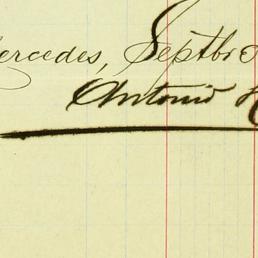 ercedes, Septbr
Antonio